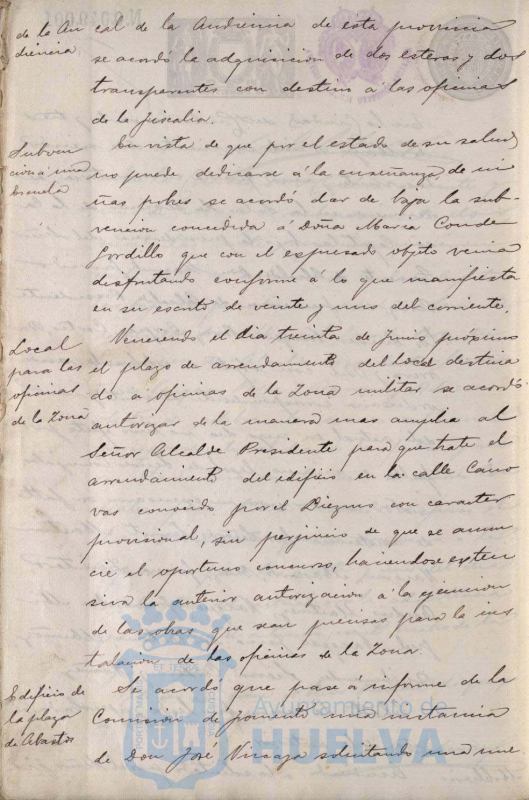 de la Au cal de la Audiencia de esta provincia
diencia. se acordó la adquisicion de dos esteras y dos
transparentes con destino á las oficinas
de la fiscalia.
Subven En vista de que por el estado de su salud
cion á una no puede dedicarse á la enseñanza de ni
Escuela ñas pobres se acordó dar de baja la sub-
vencion concedida á Doña Maria Conde
Gordillo que con el espresado objeto venia
disfrutando conforme á lo que manifiesta
en su escrito de veinte y uno del corriente.
Local Venciendo el dia treinta de Junio próximo
para las el plazo de arrendamiento del local destina
oficinas do a oficinas de la Zona militar se acordó
de la Zona autorizar de la manera mas amplia al
Señor Alcalde Presidente para que trate el
arrendamiento del edificio en la calle Cáno
vas conocido por el Diezmo con caracter
provisional, sin perjuicio de que se anun
cie el oportuno concurso, haciendose exten
siva la anterior autorizacion á la ejecucion
de las obras que sean precisas para la ins
talacion de las oficinas de la Zona.
Edificio de Se acordó que pase á informe de la
la plaza Comision de fomento una instancia
de Abastos de Don José solicitando una nue
Ayuntamiento de
HUELVA